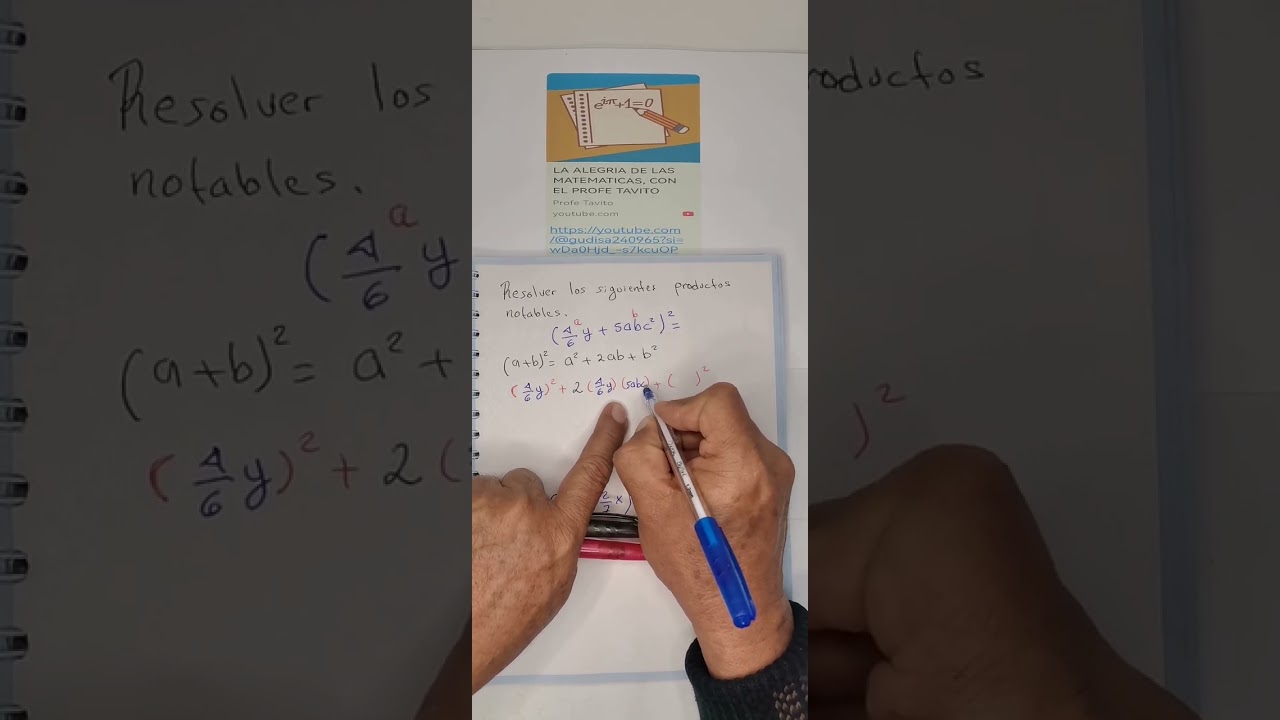 Resolver los
notables.
a
(4/6 y
(a+b)² = a² +
(4/6 y)² + 2 (
e^iπ+1=0
LA ALEGRIA DE LAS
MATEMATICAS, CON
EL PROFE TAVITO
Profe Tavito
youtube.com
https://youtube.com
/@gudisa240965?si=
wDa0Hjd_-s7kcuOP
Resolver los siguientes productos
notables.
a b
(4/6 y + 5abc²)² =
(a+b)² = a² + 2ab + b²
(4/6 y)² + 2 (4/6 y) (5abc) + ( )²
2/7 x)
roductos
)²